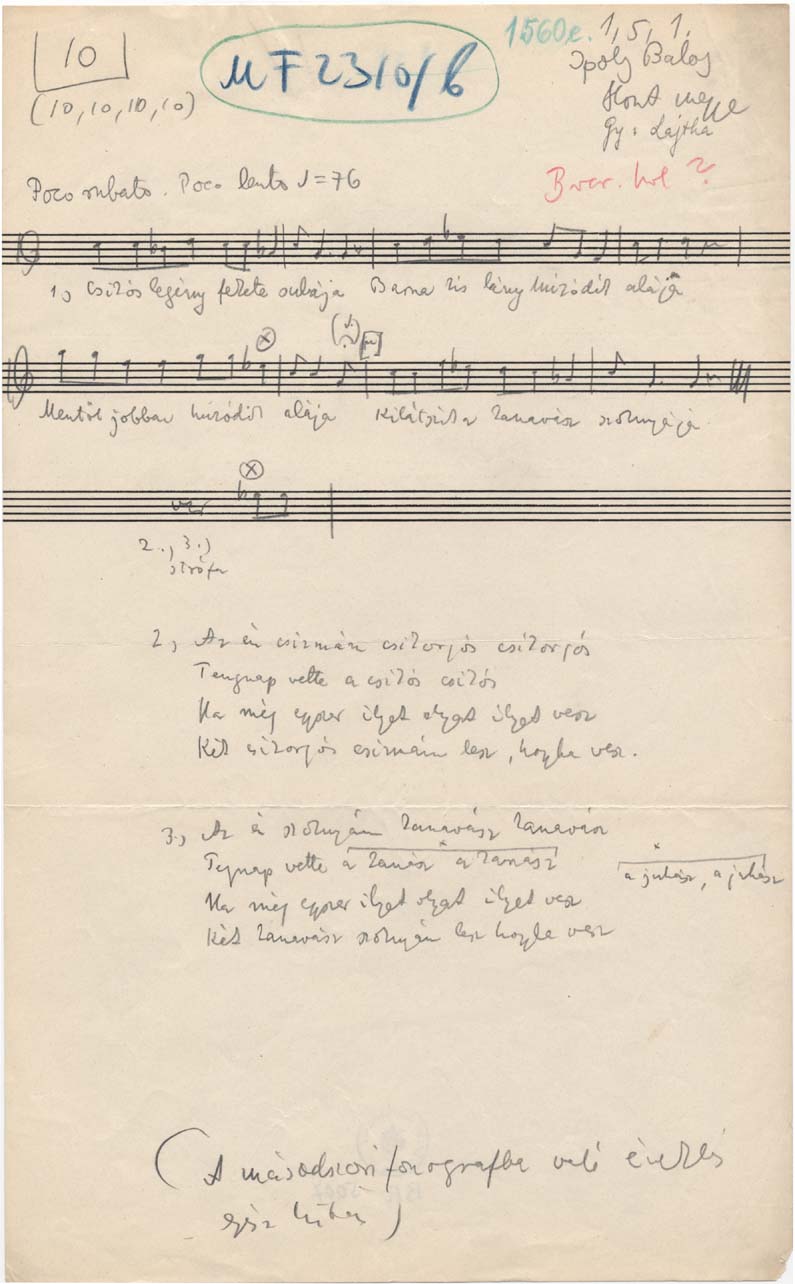 10
(10, 10, 10, 10)
MF 2310/b
1560e. 1, 5, 1.
Ipoly Balog
Hont megye
Gy: Lajtha
Poco rubato. Poco lento ♩=76
1, Csikós legény fekete subája Barna kis lány húzódik alája
Mentől jobban húzódik alája Kilátszik a kanavász szoknyája
2., 3.)
strófa
2, Az én csizmám csikorgós csikorgós
Tegnap vette a csikós csikós
Ha még egyszer ilyet olyat ilyet vesz
Két csikorgós csizmám lesz, hogyha vesz.
3, Az én szoknyám kanavász kanavász
Tegnap vette a kanász a kanász
a juhász, a juhász
Ha még egyszer ilyet olyat ilyet vesz
Két kanavász szoknyám lesz hogyha vesz
(A másodszori fonografba való éneklés
egész hibás)